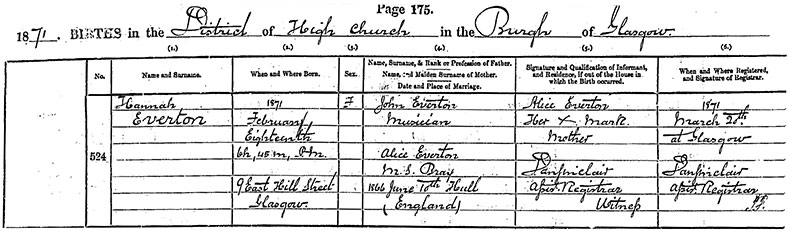 Page 175.
1871. BIRTHS in the District of High Church in the Burgh of Glasgow.
(1.) (2.) (3.) (4.) (5.) (6.)
No.
Name and Surname.
When and Where Born.
Sex.
Name, Surname, & Rank or Profession of Father.
Name, and Maiden Surname of Mother.
Date and Place of Marriage.
Signature and Qualification of Informant,
and Residence, if out of the House in
which the Birth occurred.
When and Where Registered,
and Signature of Registrar.
524
Hannah
Everton
1871
February
Eighteenth
6h, 45m, P.M.
9 East Hill Street
Glasgow.
F
John Everton
Musician
Alice Everton
M.S. Bray
1866 June 10th Hull
(England)
Alice Everton
Her X Mark
Mother
Assist. Registrar
Witness
1871
March 20th
at Glasgow
Assist. Registrar